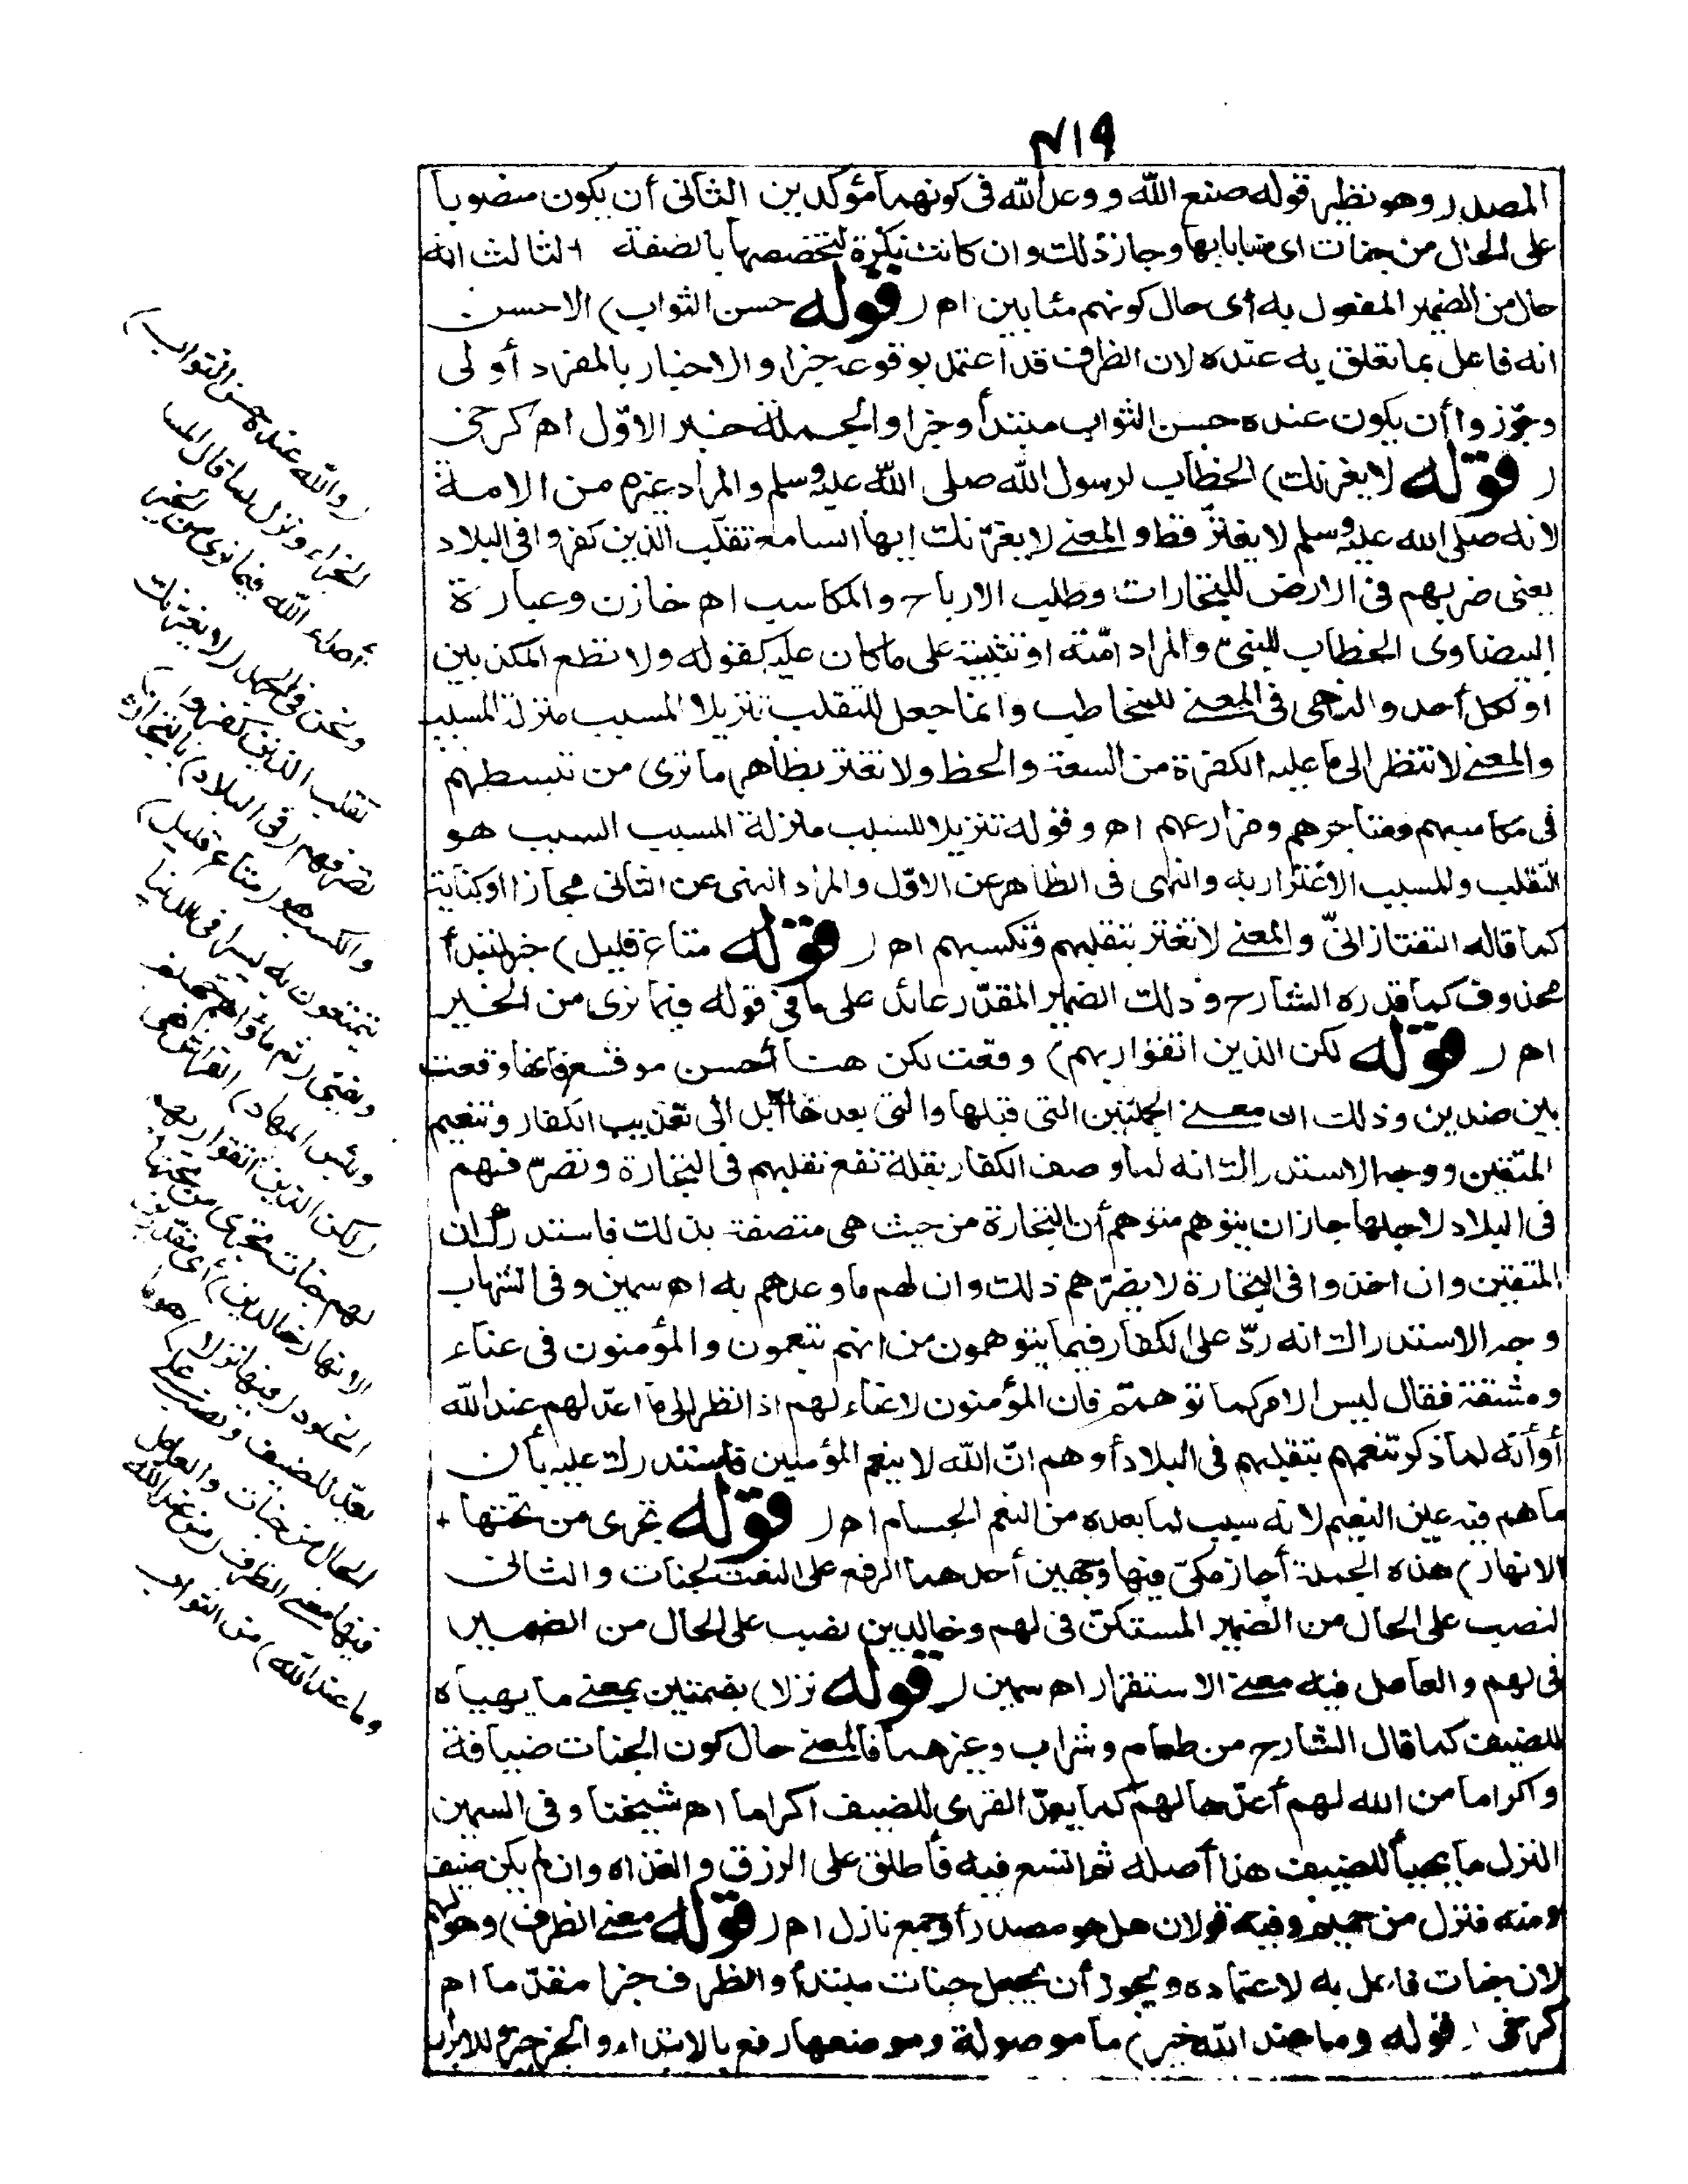 ٤١٩
المصدر وهو نظير قوله صنع الله ووعد الله فى كونهما مؤكدين الثانى أن يكون منصوبا
على الحال من جنات اى مثابا بها وجاز ذلك وان كانت نكرة لتخصصها بالصفة الثالث انه
حال من الضمير المفعول به أى حال كونهم مثابين اهـ (قوله حسن الثواب) الاحسن
انه فاعل بما تعلق به عنده لان الظرف قد اعتمد بوقوعه خبرا والاخبار بالمفرد أولى
وجوّزوا أن يكون عنده حسن الثواب مبتدأ وخبرا والجملة خبر الاوّل اهـ كرخى
(قوله لا يغرنك) الخطاب لرسول الله صلى الله عليه وسلم والمراد غيره من الامة
لانه صلى الله عليه وسلم لا يغترّ قط والمعنى لا يغرّنك ايها السامع تقلب الذين كفروا فى البلاد
يعنى ضربهم فى الارض للتجارات وطلب الارباح والمكاسب اهـ خازن وعبارة
البيضاوى الخطاب للنبىّ والمراد امّته او تثبيته على ما كان عليه كقوله ولا تطع المكذبين
او لكل أحد والنهى فى المعنى للمخاطب وانما جعل للتقلب تنزيلا للسبب منزلة المسبب
والمعنى لا تنظر الى ما عليه الكفرة من السعة والحظ ولا تغتر بظاهر ما ترى من تبسطهم
فى مكاسبهم ومتاجرهم ومزارعهم اهـ وقوله تنزيلا للسبب منزلة المسبب السبب هو
التقلب والمسبب الاغترار به والنهى فى الظاهر عن الاوّل والمراد النهى عن الثانى مجازا او كناية
كما قاله التفتازانىّ والمعنى لا تغتر بتقلبهم وتكسبهم اهـ (قوله متاع قليل) خبر مبتدأ
محذوف كما قدره الشارح وذلك الضمير المقدّر عائد على ما فى قوله فيما نرى من الخير
اهـ (قوله لكن الذين اتقوا ربهم) وقعت لكن هنا أحسن موقع فانها وقعت
بين ضدين وذلك ان معنى الجملتين التى قبلها والتى بعدها آيل الى تعذيب الكفار وتنعيم
المتقين ووجه الاستدراك انه لما وصف الكفار بقلة نفع تقلبهم فى التجارة وتصرّفهم
فى البلاد لاجلها جاز ان يتوهم متوهم أن التجارة من حيث هى متصفة بذلك فاستدرك ان
المتقين وان اخذوا فى التجارة لا يضرّهم ذلك وان لهم ما وعدهم به اهـ سمين وفى الشهاب
وجه الاستدراك انه ردّ على الكفار فيما يتوهمون من انهم يتنعمون والمؤمنون فى عناء
ومشقة فقال ليس الامر كما توهمتم فان المؤمنون لا عناء لهم اذا نظر الى ما اعدّ لهم عند الله
أو أنه لما ذكر تنعمهم بتقلبهم فى البلاد أوهم انّ الله لا ينعم المؤمنين فاستدرك عليه بأن
ما هم فيه عين النعيم لانه سبب لما بعده من النعم الجسام اهـ (قوله تجرى من تحتها
الانهار) هذه الجملة أجاز مكىّ فيها وجهين أحدهما الرفع على النعت لجنات والثانى
النصب على الحال من الضمير المستكن فى لهم وخالدين نصب على الحال من الضمير
فى لهم والعامل فيه معنى الاستقرار اهـ سمين (قوله نزلا) بضمتين بمعنى ما يهيأ
للضيف كما قال الشارح من طعام وشراب وغيرهما فالمعنى حال كون الجنات ضيافة
واكراما من الله لهم أعدّها لهم كما يعدّ القرى للضيف اكراما اهـ شيخنا وفى السمين
النزل ما يهيأ للضيف هذا أصله ثم اتسع فيه فأطلق على الرزق والغذاء وان لم يكن ضيف
ومنه فنزل من حميم وفيه قولان هل هو مصدر أو جمع نازل اهـ (قوله معنى الظرف) وهو لهم
لان جنات فاعل به لاعتماده ويجوز أن يجعل جنات مبتدأ والظرف خبرا مقدّما اهـ
كرخى (قوله وما عند الله خير) ما موصولة وموضعها رفع بالابتداء والخبر خير للابرار
(والله عنده حسن الثواب)
الجزاء ونزل لما قال المسلمون
أعداء الله فيما نرى من الخير
ونحن فى الجهد (لا يغرنك
تقلب الذين كفروا)
تصرفهم (فى البلاد) بالتجارة
والكسب هو (متاع قليل)
يتمتعون به يسيرا فى الدنيا
ويفنى (ثم مأواهم جهنم
وبئس المهاد) الفراش هى
(لكن الذين اتقوا ربهم
لهم جنات تجرى من تحتها
الانهار خالدين) أى مقدّرين
الخلود (فيها نزلا) هو ما
يعدّ للضيف ونصبه على
الحال من جنات والعامل
فيها معنى الظرف (من عند الله
وما عند الله) من الثواب